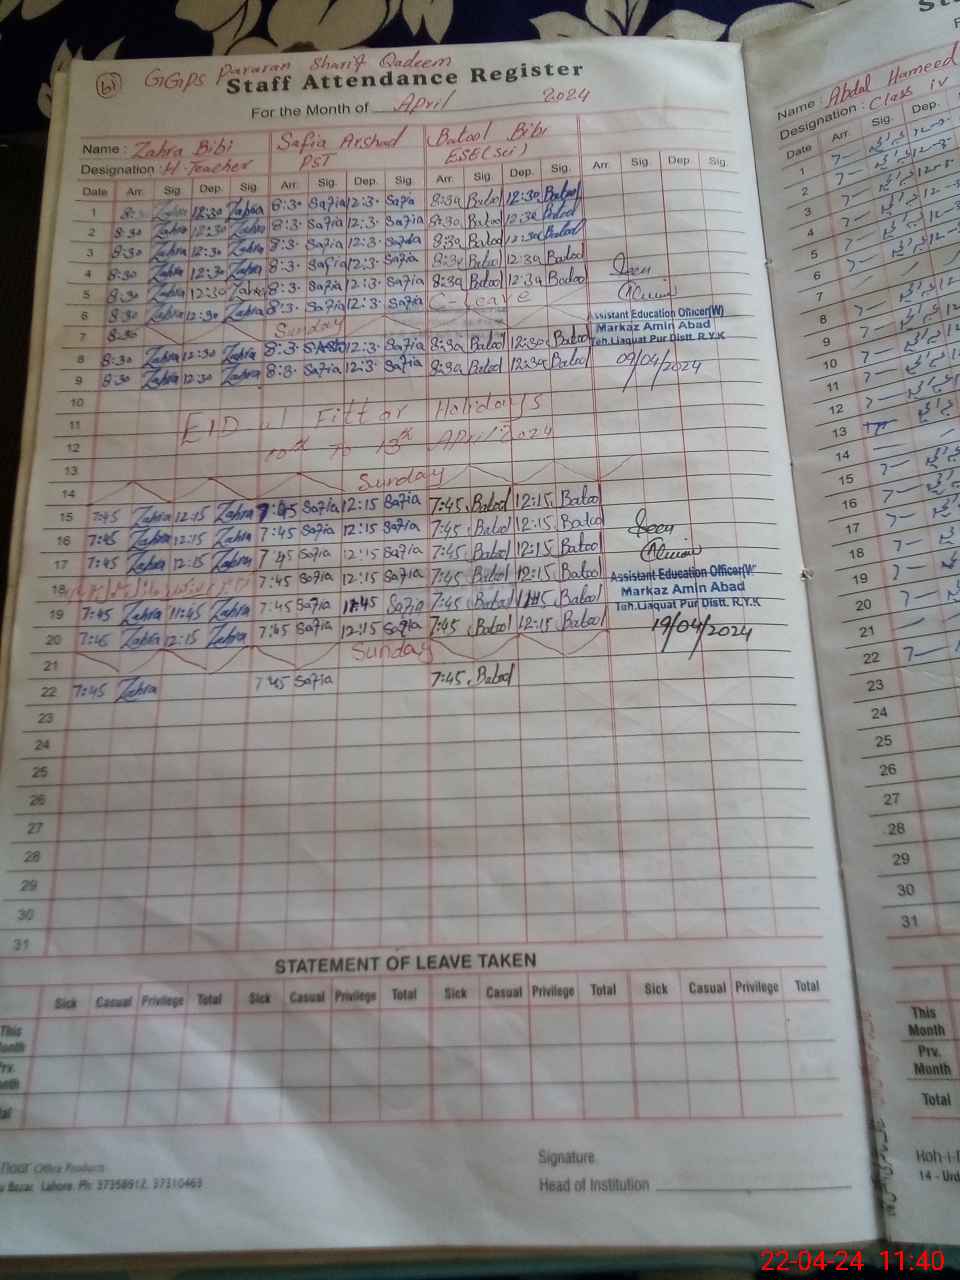 61 GGPS Pararan Sharif Qadeem
Staff Attendance Register
For the Month of April 2024
Name: Zahra Bibi Safia Arshad Batool Bibi
Designation: H.Teacher PST ESE(Sci)
Date Arr. Sig. Dep. Sig. Arr. Sig. Dep. Sig. Arr. Sig. Dep. Sig. Arr. Sig. Dep. Sig.
1 8:30 Zahra 12:30 Zahra 8:3. Safia 12:3. Safia 8:30 Batool 12:30 Batool
2 8:30 Zahra 12:30 Zahra 8:3. Safia 12:3. Safia 8:30 Batool 12:30 Batool
3 8:30 Zahra 12:30 Zahra 8:3. Safia 12:3. Safia 8:30 Batool 12:30 Batool
4 8:30 Zahra 12:30 Zahra 8:3. Safia 12:3. Safia 8:30 Batool 12:30 Batool
5 8:30 Zahra 12:30 Zahra 8:3. Safia 12:3. Safia 8:30 Batool 12:30 Batool
6 8:30 Zahra 12:30 Zahra 8:3. Safia 12:3. Safia C-Leave
7 8:30 Sunday
8 8:30 Zahra 12:30 Zahra 8:3. 12:3. Safia 8:30 Batool 12:30 Batool
9 8:30 Zahra 12:30 Zahra 8:3. Safia 12:3. Safia 8:30 Batool 12:30 Batool
Seen
Assistant Education Officer(W)
Markaz Amin Abad
Teh.Liaquat Pur Distt. R.Y.K
09/04/2024
10
11 EID ul Fittar Holidays
12 10th To 13th April 2024
13
14 Sunday
15 7:45 Zahra 12:15 Zahra 7:45 Safia 12:15 Safia 7:45 Batool 12:15 Batool
16 7:45 Zahra 12:15 Zahra 7:45 Safia 12:15 Safia 7:45 Batool 12:15 Batool
17 7:45 Zahra 12:15 Zahra 7:45 Safia 12:15 Safia 7:45 Batool 12:15 Batool
18 7:45 Safia 12:15 Safia 7:45 Batool 12:15 Batool
19 7:45 Zahra 11:45 Zahra 7:45 Safia 11:45 Safia 7:45 Batool 11:45 Batool
20 7:45 Zahra 12:15 Zahra 7:45 Safia 12:15 Safia 7:45 Batool 12:15 Batool
Seen
Assistant Education Officer(W
Markaz Amin Abad
Teh.Liaquat Pur Distt. R.Y.K
19/04/2024
21 Sunday
22 7:45 Zahra 7:45 Safia 7:45 Batool
23
24
25
26
27
28
29
30
31
STATEMENT OF LEAVE TAKEN
Sick Casual Privilege Total Sick Casual Privilege Total Sick Casual Privilege Total Sick Casual Privilege Total
This Month
Prv. Month
Total
noor Office Products
Bazar, Lahore. Ph: 37358912, 37310463
Signature
Head of Institution
Name: Abdul Hameed
Designation: Class iv
Date Arr. Sig. Dep.
1
2
3
4
5
6
7
8
9
10
11
12
13
14
15
16
17
18
19
20
21
22
23
24
25
26
27
28
29
30
31
This Month
Prv. Month
Total
Koh-i-
14 - Urd
22-04-24 11:40